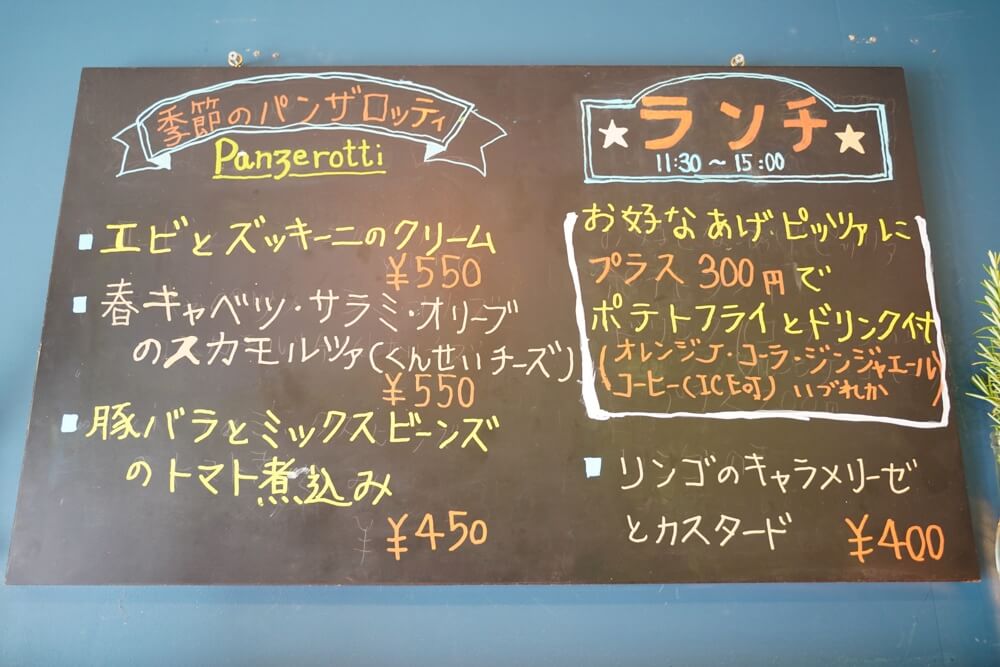 季節のパンザロッティ
Panzerotti
エビとズッキーニのクリーム
¥550
春キャベツ・サラミ・オリーブ
のスカモルツァ(くんせいチーズ)
¥550
豚バラとミックスビーンズ
のトマト煮込み
¥450
ランチ
11:30～15:00
お好なあげピッツァに
プラス300円で
ポテトフライとドリンク付
(オレンジJ・コーラ・ジンジャエール
コーヒー(ICE可)いづれか)
リンゴのキャラメリーゼ
とカスタード
¥400